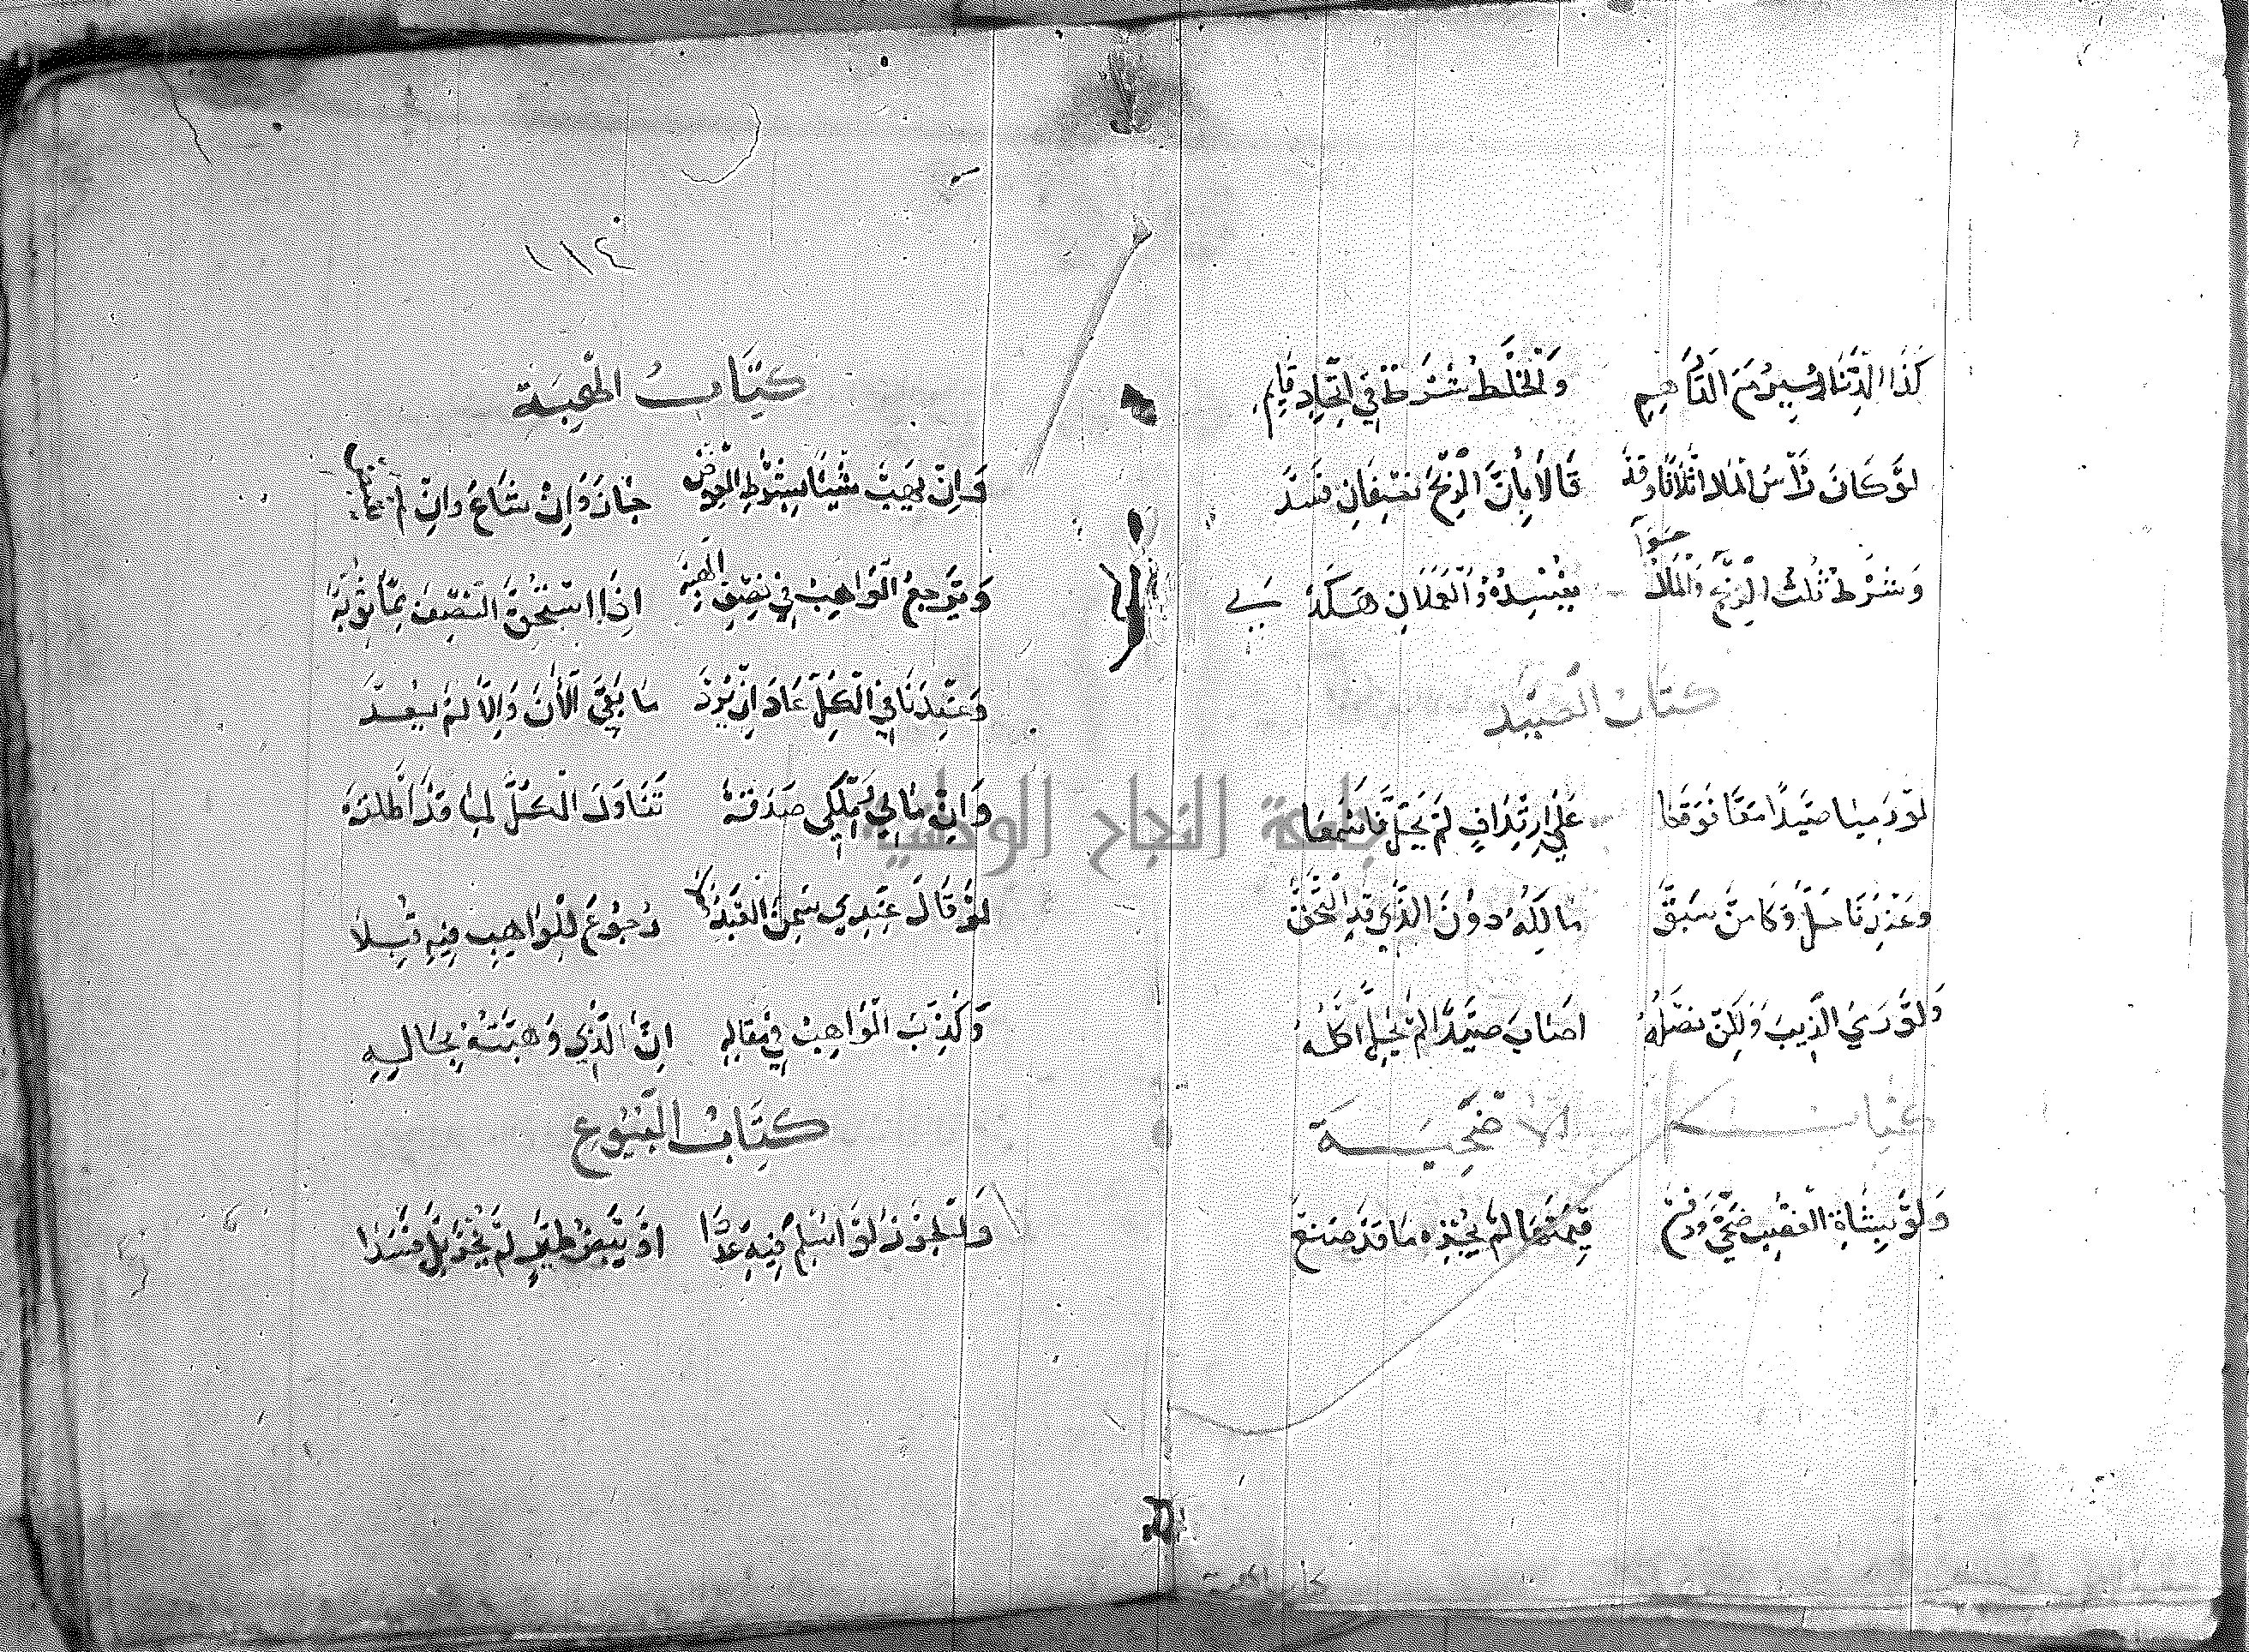 كَذَا الدَّنَانِيرُ مَعَ الدَّرَاهِمِ وَالْخَلْطُ شَرْطٌ فِي اتِّحَادٍ قَايِمِ
لَوْ كَانَ رَأْسُ الْمَالِ اثْلَاثًا وَقَدْ قَالَا بِأَنَّ الرِّبْحَ نِصْفَانِ فَسَدْ
وَشَرْطُ ثُلْثِ الرِّبْحِ وَالْمَالُ سَوَا يُفْسِدُهُ وَالْعَمَلَانِ هَكَذَا
كتاب الصَّيْد
لَوْ رَمَيَا صَيْدًا مَعًا فَوَقَعَا عَلَى ارْتِدَافٍ لَمْ يَحِلَّ فَاسْمَعَا
وَعِنْدَنَا حَلَّ وَكَا مَنْ سَبَقْ مَالِكُهُ دُونَ الَّذِي قَدِ الْتَحَقْ
وَلَوْ رَمَى الذِّيبَ وَلَكِنْ نَصْلُهُ اصَابَ صَيْدًا لَمْ يَحِلَّ اكْلُهُ
كتاب الأضحية
وَلَوْ بِشَاةِ الْغَصْبِ ضَحَّى وَدَفَعْ قِيمَتَهَا لَمْ يُجْزِهِ مَا قَدْ صَنَعْ
١١٢
كِتَابُ الْهِبَة
وَانْ يَهَبْ شَيْئًا بِشَرْطِ الْعِوَضِ جَازَ وَانْ شَاعَ وَانْ لَمْ
وَيَرْجِعُ الْوَاهِبُ فِي نِصْفِ الْهِبَهْ اذَا اسْتُحِقَّ النِّصْفُ مِمَّا ثَوَّبَهْ
وَعِنْدَنَا فِي الْكُلِّ عَادَ انْ يَرُدْ مَا بَقِيَ الْآنَ وَإِلَّا لَمْ يَعُدْ
وَانْ مَالِي مِلْكِي صَدَقَهْ تَنَاوَلَ الْكُلَّ لِمَا قَدْ أَطْلَقَهْ
لَوْ قَالَ عِنْدِي سَمِنَ الْعَبْدُ فَلَا رُجُوعَ لِلْوَاهِبِ فِيهِ قُبِلَا
وَكَذَّبَ الْوَاهِبُ فِي مَقَالِهِ انَّ الَّذِي وَهَبْتُهُ بِحَالِهِ
كِتَابُ الْبُيُوع
وَلَحْمُ لَوْ اسْلَمَ فِيهِ عَدَّا اوْ بَيْضُ طَيْرٍ لَمْ يَجُزْ بَلْ فَسَدَا
جامعة النجاح الوطنية